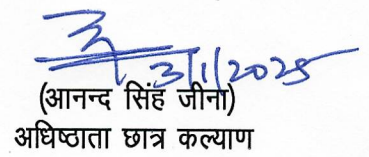 3/1/2025
(आनन्द सिंह जीना)
अधिष्ठाता छात्र कल्याण